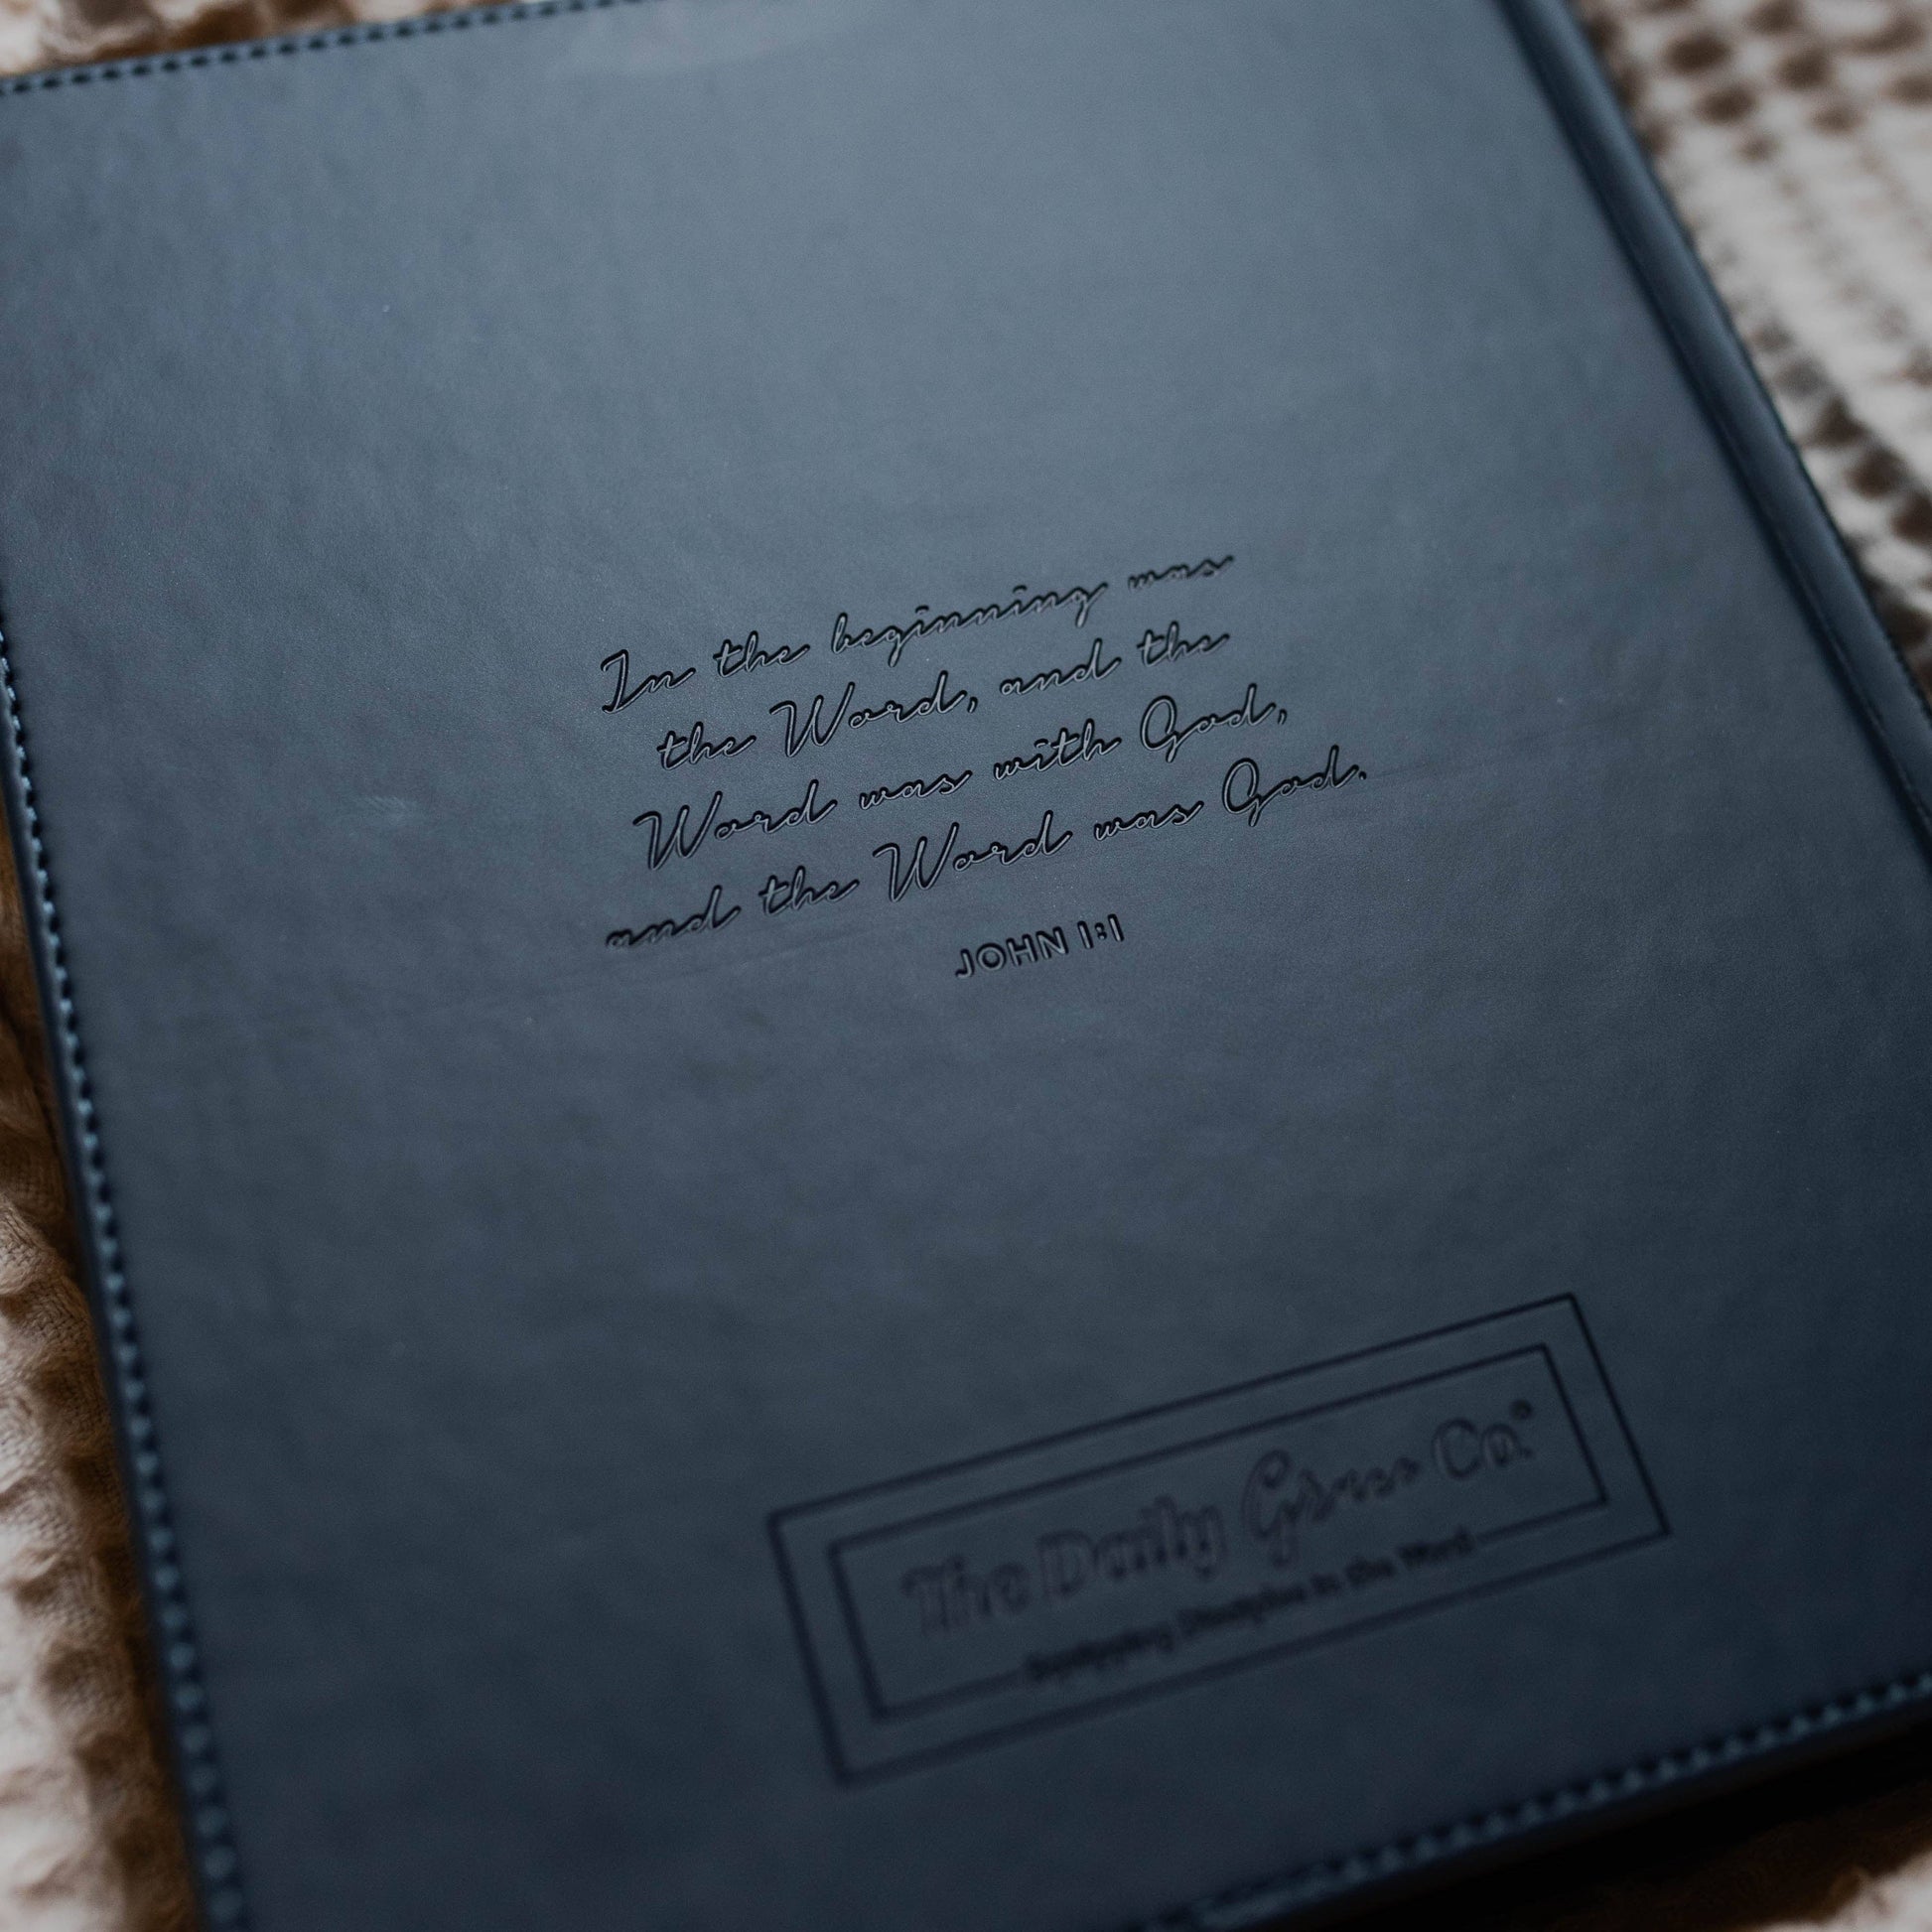 In the beginning was
the Word, and the
Word was with God,
and the Word was God.
JOHN 1:1
The Daily Grace Co.®
Equipping Disciples in the Word